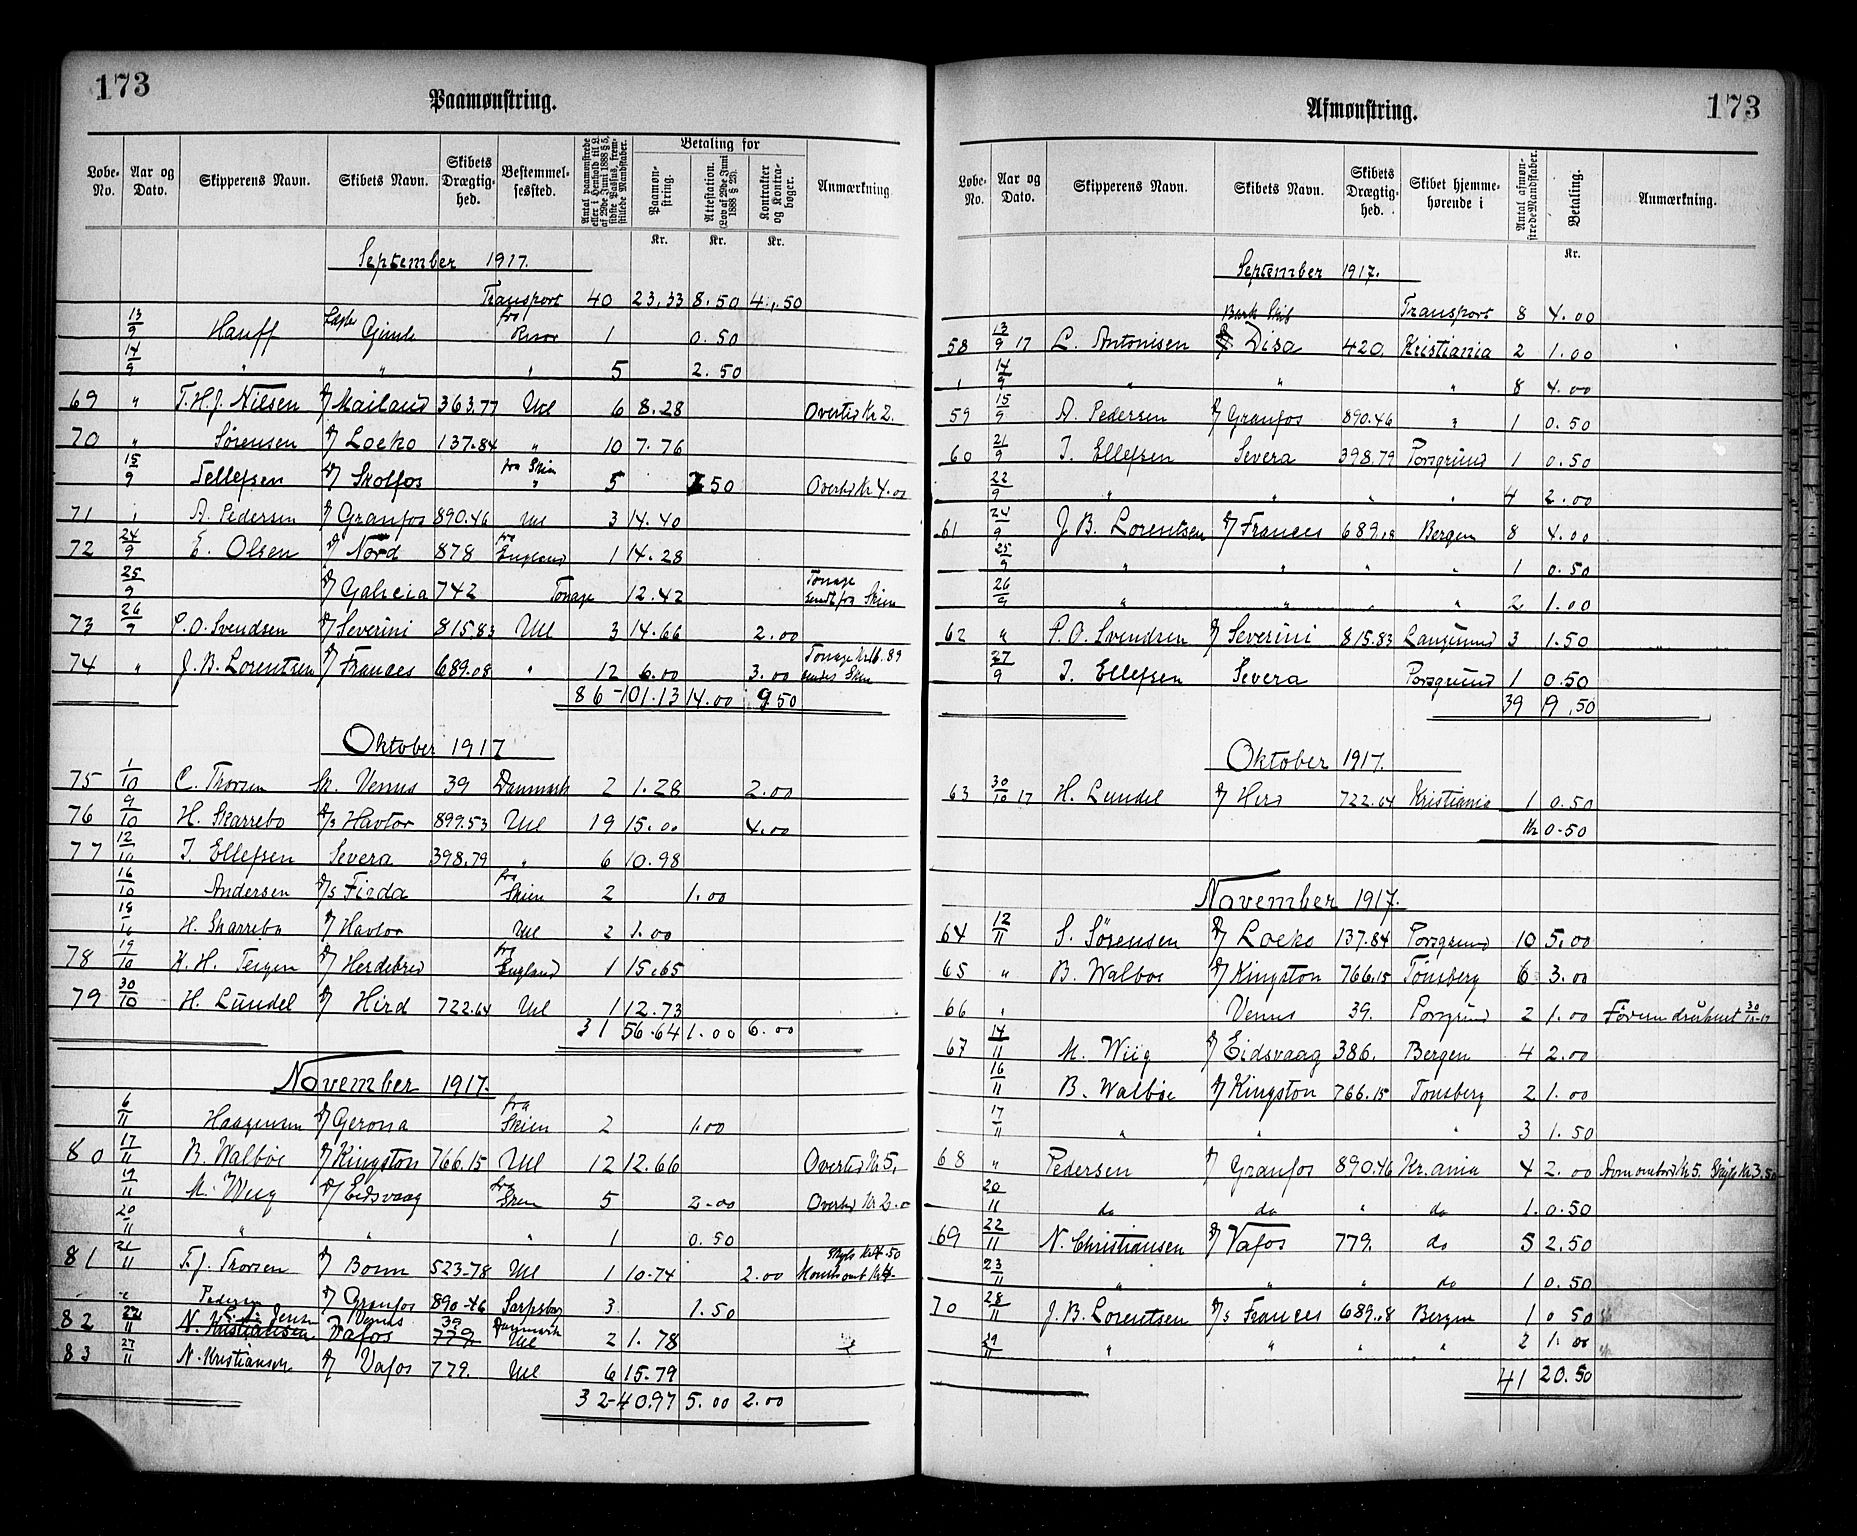 173
Paamønstring.
Løbe-No. Aar og Dato. Skipperens Navn. Skibets Navn. Skibets Drægtig-hed. Bestemmel-sessted. Antal paamønstrede eller i Henhold til L. af 29de Juni 1888 § 5, sidste Passus, frem-stillede Mandskaber. Betaling for Paamøn-string. Attestation. (Lov af 29de Juni 1888 § 23). Kontrakter og Kontra-bøger. Anmærkning.
Kr. Kr. Kr.
September 1917.
Transport 40 23,33 8.50 4.,50
13/9 Hauff Gimle fra Risør 1 0.50
14/9 " " " 5 2.50
69 " T.H.J. Nilsen Mailand 363.77 Utl 6 8.28 Overtid Kr 2.
70 " Sørensen Loeko 137.84 " 10 7.76
15/9 Tellefsen Skotfos fra Skien 5 2 50 Overtid Kr 4.00
71 " A. Pedersen Granfos 890.46 Utl 3 14.40
72 24/9 E. Olsen Nord 878 fra England 1 14.28
25/9 Galicia 742 Tonage 12.42 Tonage sendt fra Skien
73 26/9 P.O. Svendsen Severini 815.83 Utl 3 14.66 2.00
74 " J.B. Lorentsen Frances 689.08 " 12 6.00 3.00 Tonage
86 - 101.13 14.00 9.50
Oktober 1917
75 1/10 C. Thorsen Sk. Venus 39 Danmark 2 1.28 2.00
76 9/10 H. Skarrebo D/S Havtor 899.53 Utl 19 15.00 4.00
77 12/10 I. Ellefsen Severa 398.79 " 6 10.98
16/10 Andersen D/S Firda fra Skien 2 1.00
18/10 H. Skarrebo Havtor Utl 2 1.00
78 19/10 K.H. Teigen Herdebred fra England 1 15.65
79 30/10 H. Lundel Hird 722.64 Utl 1 12.73
31 56.64 1.00 6.00
November 1917.
6/11 Haagensen Gerona fra Skien 2 1.00
80 17/11 B. Walbøe Kingston 766.15 Utl 12 12.66 Overtid Kr 5,
19/11 M. Wiig Eidsvaag fra Skien 5 2.00 Overtid Kr 2.0
20/11 " " " 1 0.50
81 21/11 T.J. Thorsen Bonn 523.78 Utl 1 10.74 2.00
" Pedersen Granfos 890.46 Sarpsborg 3 1.50
Jensen Venus 39 Danmark
82 22/11 N. Kristiansen Vafos 779 Utl 2 1.78
83 27/11 N. Kristiansen Vafos 779. Utl 6 15.79
32 - 40.97 5.00 2.00
173
Afmønstring.
Løbe-No. Aar og Dato. Skipperens Navn. Skibets Navn. Skibets Drægtig-hed. Skibet hjemme-hørende i Antal afmøn-strede Mandskaber. Betaling. Anmærkning.
Kr.
September 1917.
Bark Skib Transport 8 4.00
58 13/9 17 L. Antonisen Disa 420. Kristiania 2 1.00
14/9 " " " 8 4.00
59 15/9 A. Pedersen Granfos 890.46 " 1 0.50
60 21/9 I. Ellefsen Severa 398.79 Porsgrund 1 0.50
22/9 " " " " 4 2.00
61 24/9 J.B. Lorentsen Frances 689.08 Bergen 8 4.00
25/9 " " " " 1 0.50
26/9 " " " " 2 1.00
62 " P.O. Svendsen Severini 815.83 Langesund 3 1.50
27/9 I. Ellefsen Severa Porsgrund 1 0.50
39 19.50
Oktober 1917.
63 30/10 17 H. Lundel Hird 722.64 Kristiania 1 0.50
Kr 0.50
November 1917.
64 12/11 S. Sørensen Loeko 137.84 Porsgrund 10 5.00
65 " B. Walboe Kingston 766.15 Tønsberg 6 3.00
66 " Venus 39. Porsgrund 2 1.00 Føreren druknet 30/10-17
67 14/11 M. Wiig Eidsvaag 386. Bergen 4 2.00
16/11 B. Walbøe Kingston 766.15 Tønsberg 2 1.00
17/11 " " " 3 1.50
68 " Pedersen Granfos 890.46 Kr.ania 4 2.00 Avm ombord Kr 5. Skyds Kr 3.50
20/11 do do " do 1. 0.50
69 22/11 N. Christiansen Vafos 779. do 5 2.50
23/11 " " " do 1 0.50
70 28/11 J.B. Lorentsen D/S Frances 689.08 Bergen 1 0 50
29/11 " " " " 2 1.00
41 20.50